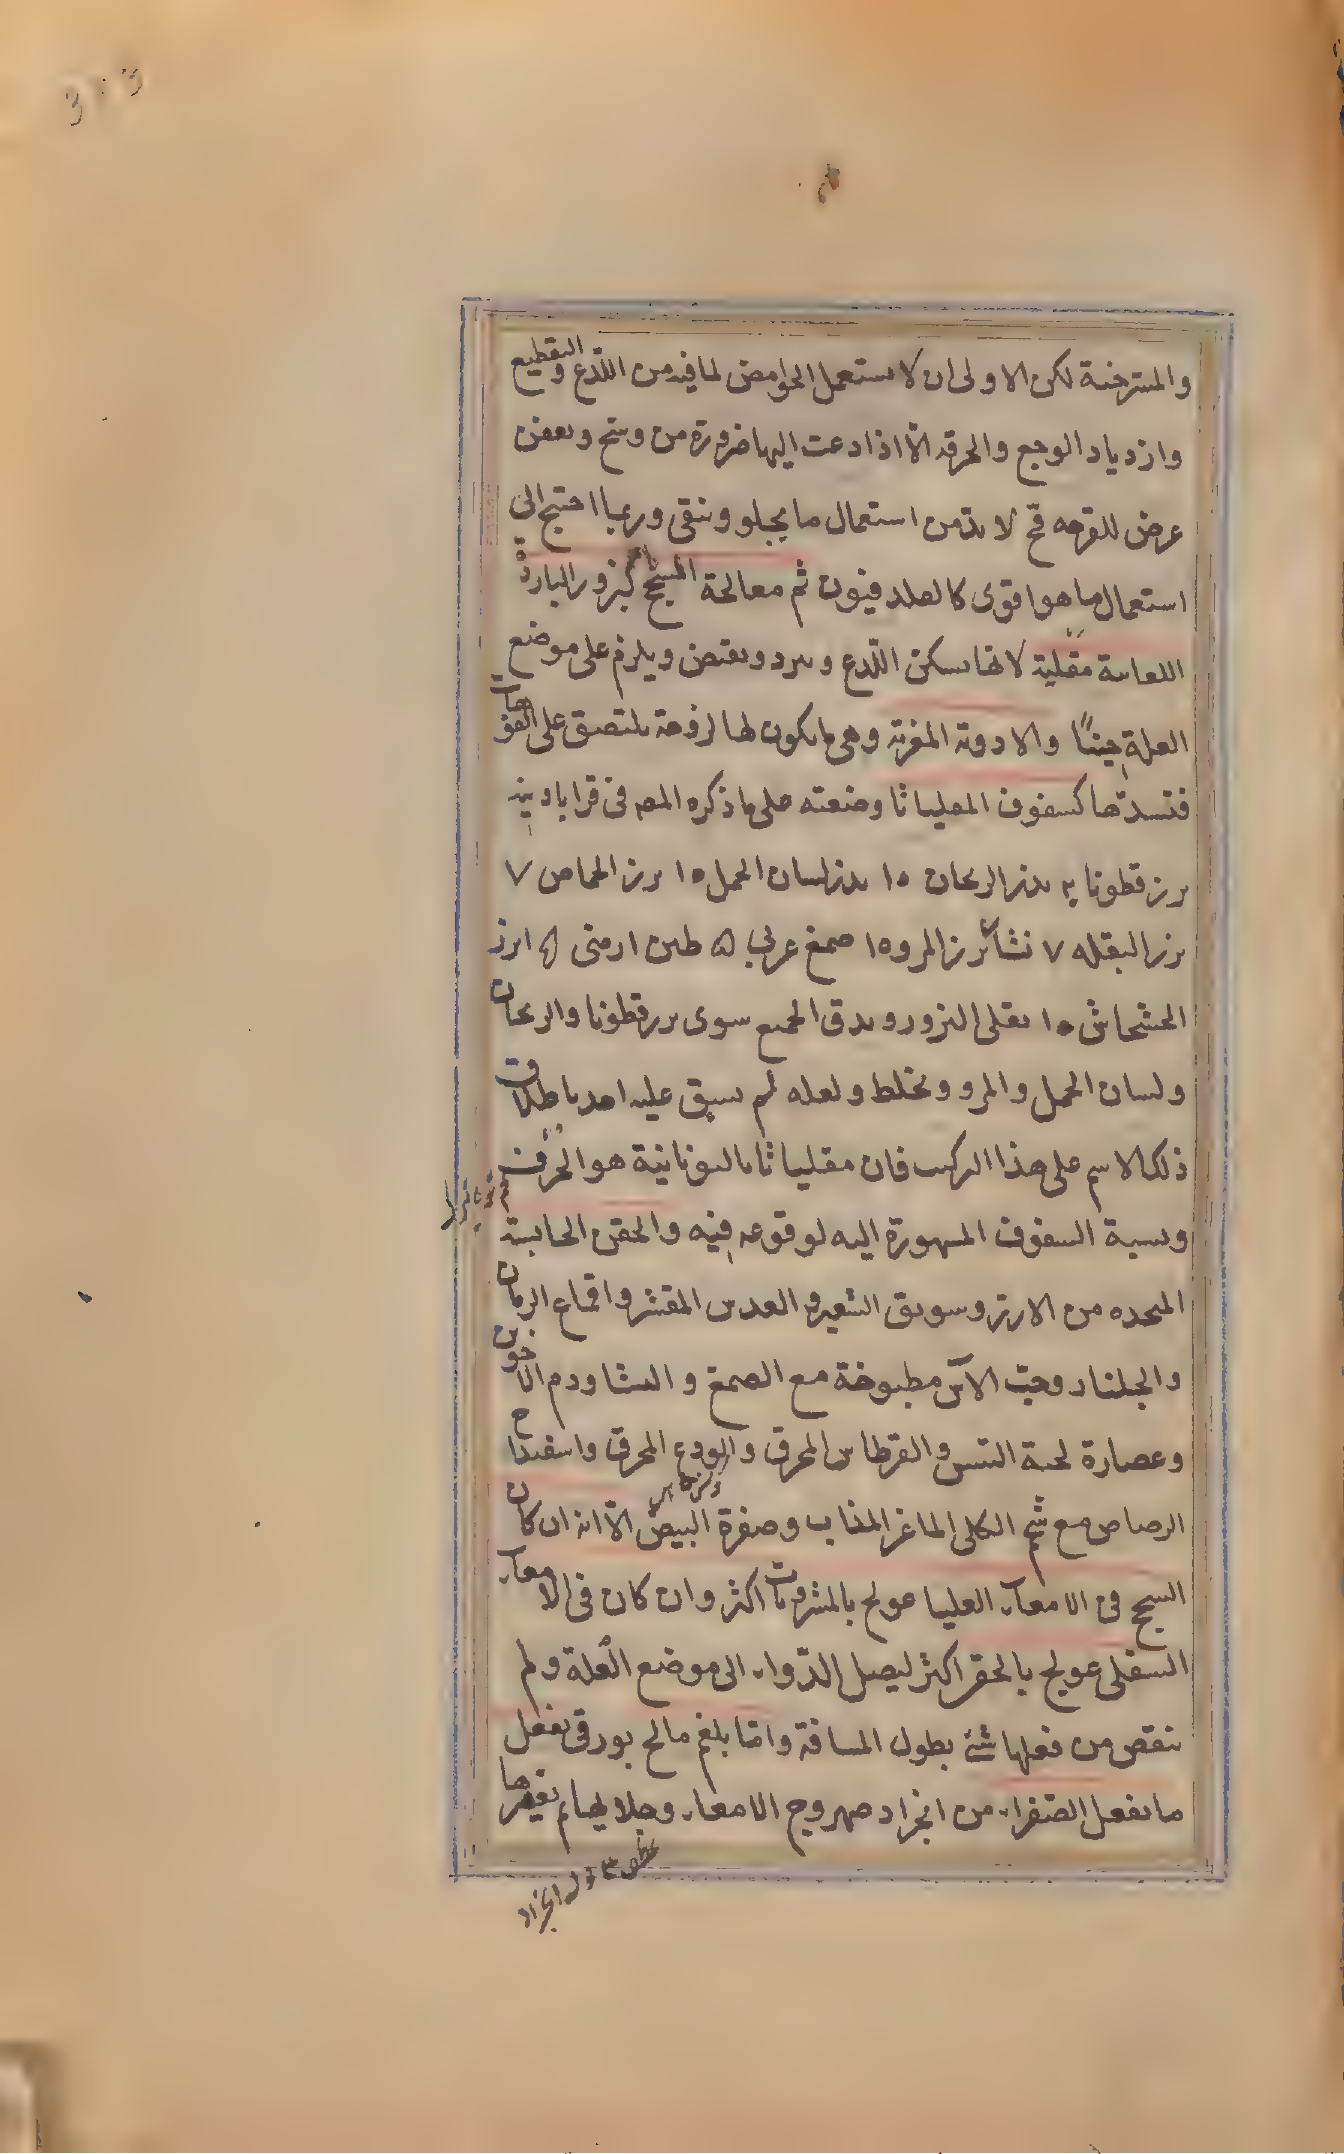 والمسترخية لكن الاولى ان لا يستعمل الحوامض لما فيه من اللذع والتقطيع
وازدياد الوجع والحرقة الا اذا دعت اليها ضرورة من وسخ وعفن
عرض للقرحه فح لا بد من استعمال ما يجلو وينقى وربما احتيج الى
استعمال ما هو اقوى كالفلدفيون ثم معالجة السحج بالبزور الباردة
اللعابية مقلية لانها يسكن اللذع ويبرد ويقبض ويلزم على موضع
العلة حينًا والادوية المغرية وهى ما يكون لها لزوجة يلتصق على الفوهات
فتسدّها كسفوف المقلياثا وصنعته على ما ذكره المص فى قرابادينه
بزرقطونا بزر الريحان ١٥ بزر لسان الحمل ١٥ بزر الحماض ٧
بزر البقله ٧ نشا بزر المرو ١٥ صمغ عربى ۵ طين ارمنى ۵ بزر
الخشخاش ١٥ يقلى البزور ويدق الجميع سوى بزرقطونا والريحان
ولسان الحمل والمرو ويخلط ولعله لم يسبق عليه احد باطلاق
ذلك الاسم على هذا التركيب فان مقلياثا باليونانية هو الحرف
ونسبة السفوف المشهورة اليه لوقوعه فيه والحقن الحابسة
المتخذه من الارز وسويق الشعير والعدس المقشر واقماع الرمان
والجلنار وحبّ الآس مطبوخة مع الصمغ والنشا ودم الاخوين
وعصارة لحية التيس والقرطاس المحرق والودع المحرق واسفيداج
الرصاص مع شحم الكلى الماعز المذاب وصفرة البيض الا انه ان كان
السحج فى الامعاء العليا عولج بالمشروبات اكثر وان كان فى الامعاء
السفلى عولج بالحقن اكثر ليصل الدواء الى موضع العلة ولم
ينقص من فعلها شئ بطول المسافة واما بلغم مالح بورقى يفعل
ما يفعل الصفراء من انجراد صهروج الامعاء وجلائها ثم تقشرها